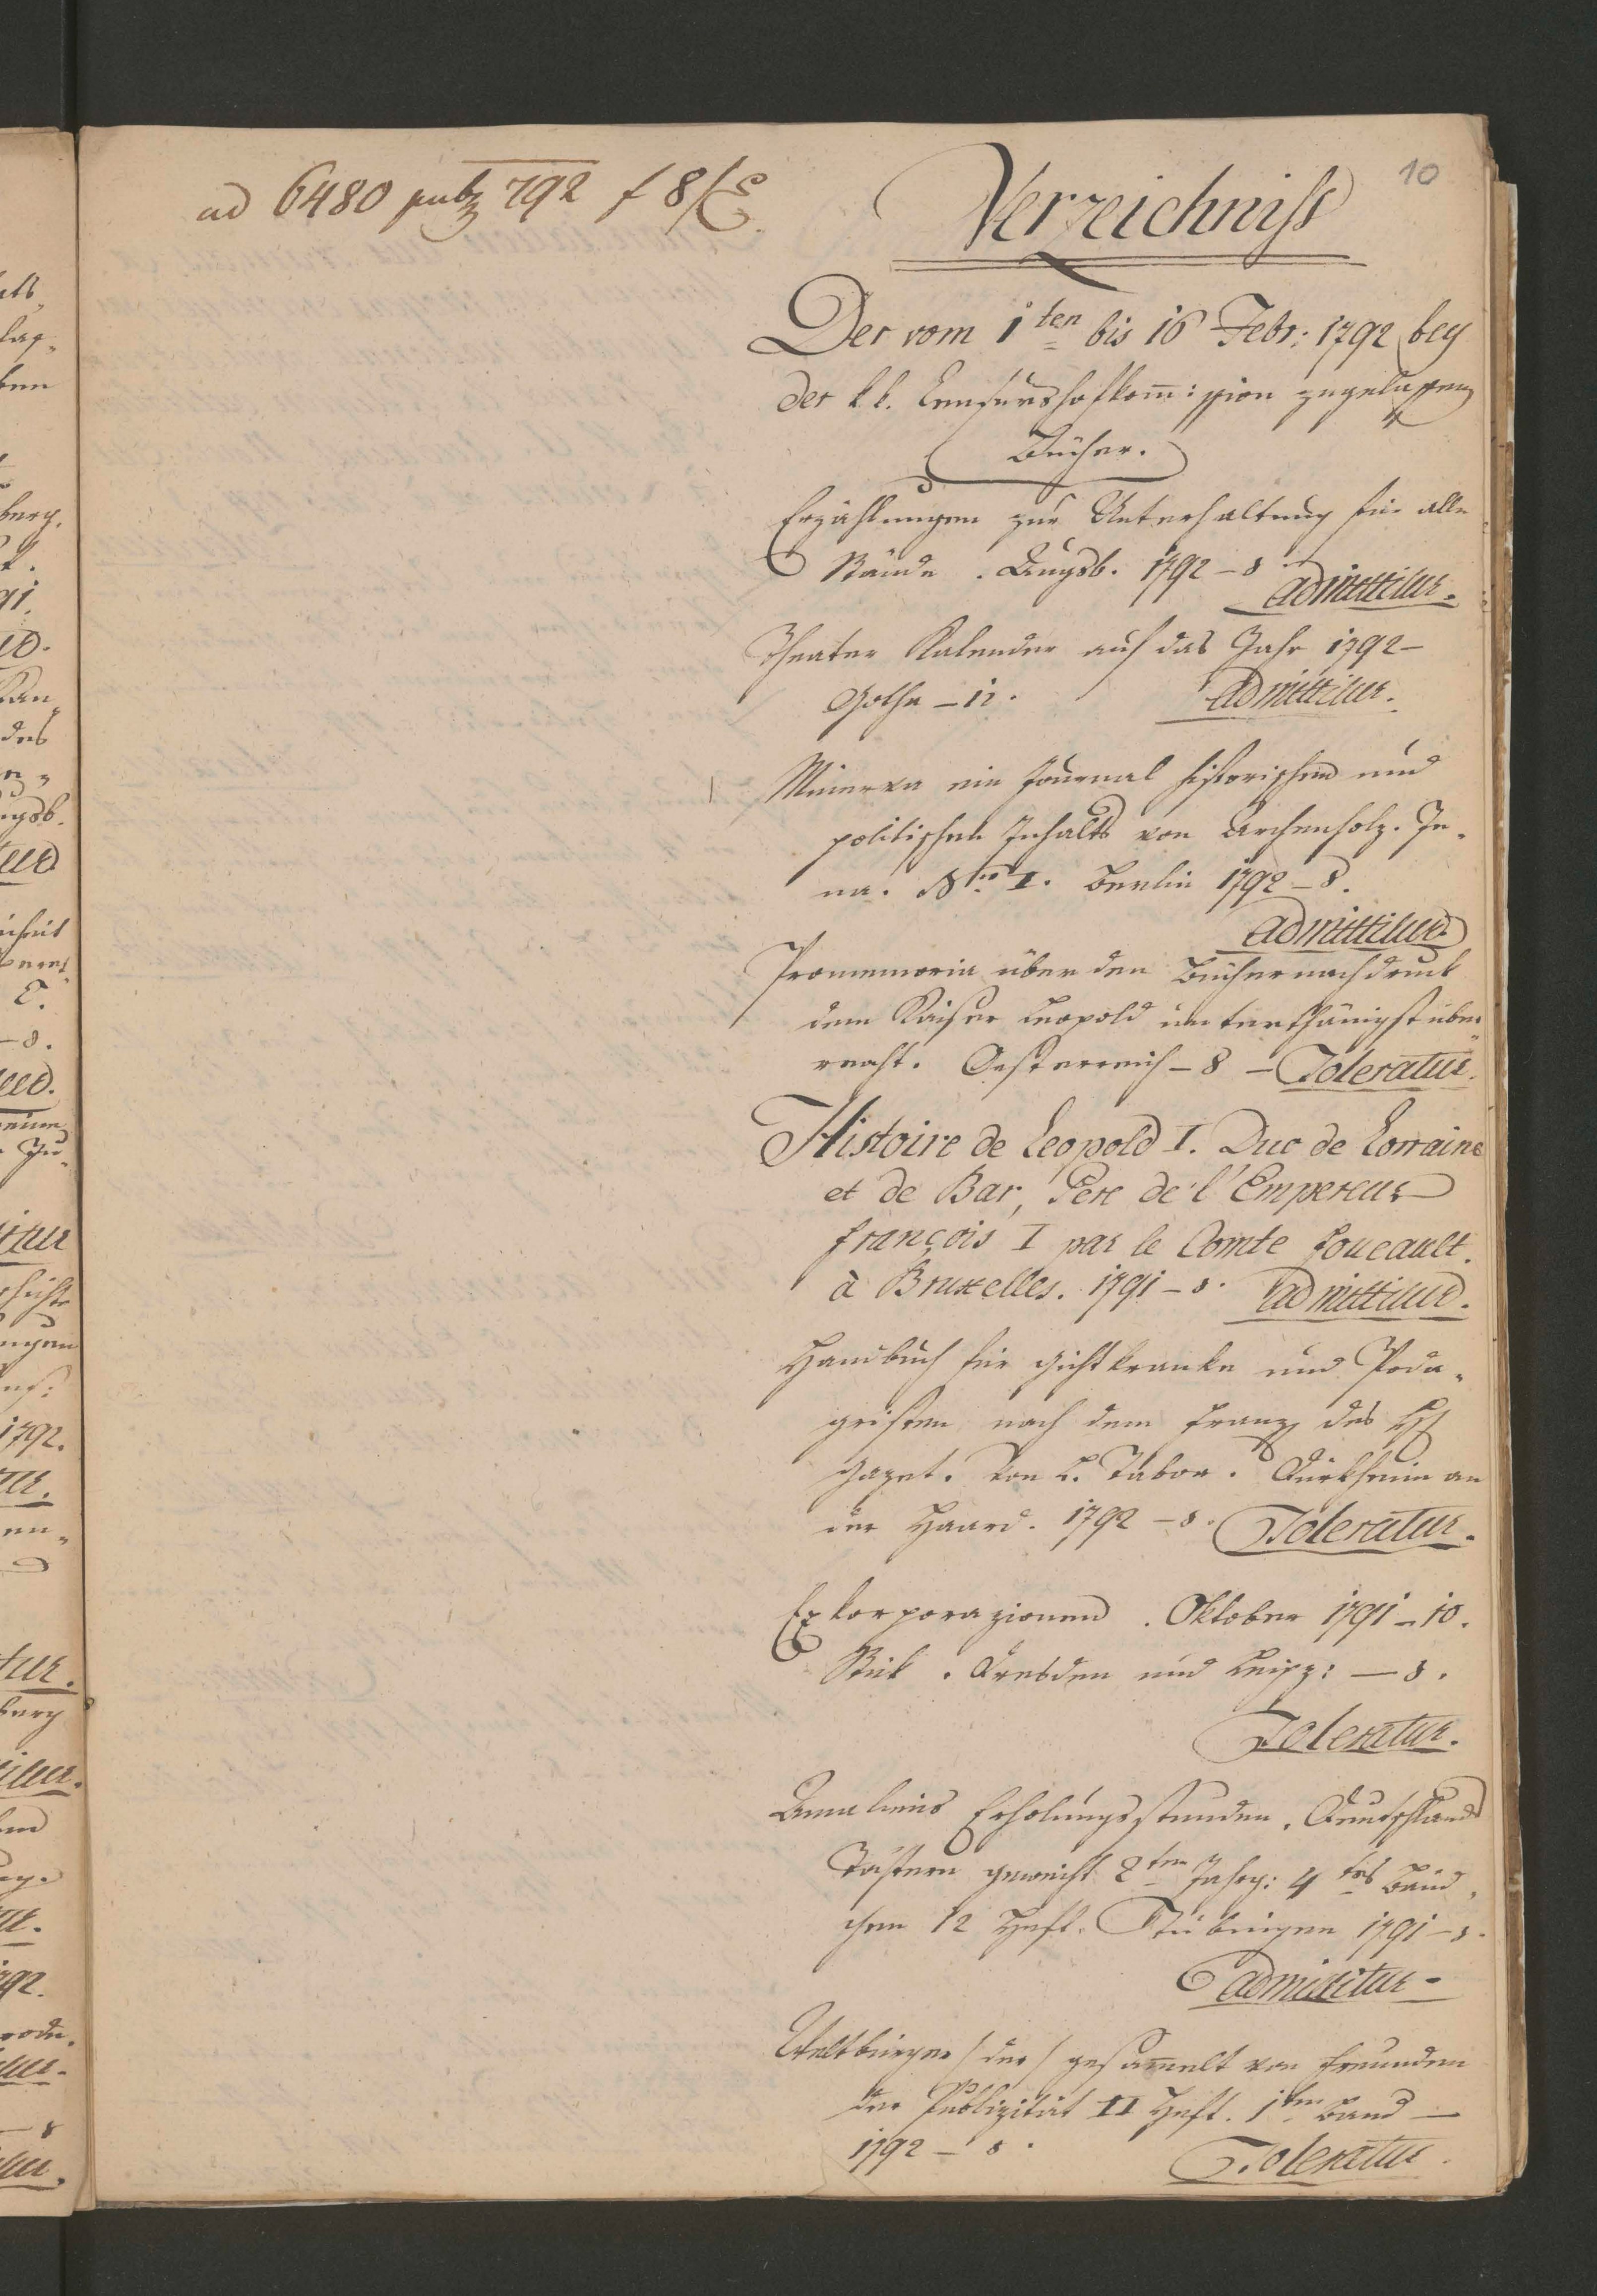 10
ad 6480 pub 792 f 8/E.
Verzeichniss
Der vom 1ten bis 16 Febr: 1792 bey
der k. k. Censurshofkom̅:ission zugelassenen
Bücher.
Erzählungen zur Unterhaltung für alle
Stände. Augsb. 1792 – 8
admittitur.
Theater Kalender auf das Jahr 1792 –
Gotha – 12. admittitur.
Minerva ein Journal historischen und
politischen Inhalts von Archenholz. Je-
na. Nro I. Berlin 1792 – 8.
admittitur
Promemoria über den Büchernachdruck
dem Kaiser Leopold unterthänigst über-
reicht. Oesterreich – 8 – Toleratur.
Histoire de Leopold I. Duc de Lorraine
et de Bar, Pere de l'Empereur
françois I par le Comte Foucault.
à Bruxelles. 1791 – 8. admittitur.
Handbuch für Gichtkranke und Poda-
gristen nach dem Franz des H
Gazet. Von H. Tabor. Dürkheim an
der Haard. 1792 – 8. Toleratur.
Exkorporazionen. Oktober 1791 – 10.
Stük. Dresden und Leipz: – 8.
Toleratur.
Amaliens Erholungsstunden. Deutschlands
Töchtern geweiht 2ter Jahrg: 4tes Bänd-
chen 12 Heft. Tübingen 1791 – 8.
admittitur –
Weltbürger / der / gesam̅elt von Freunden
der Publizität II Heft. 1ter Band –
1792 – 8. Toleratur.